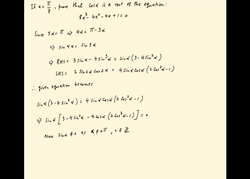 If α = π/7, prove that cosα is a root of the equation:
8x³ - 4x² - 4x + 1 = 0
Since 7α = π ⇒ 4α = π - 3α
⇒ sin4α = sin3α
⇒ RHS = 3sinα - 4sin³α = sinα(3 - 4sin²α)
LHS = 2 sin2α cos2α = 4 sinα cosα (2cos²α - 1)
∴ given equation becomes
sinα(3 - 4sin²α) = 4 sinα cosα (2cos²α - 1)
⇒ sinα [3 - 4sin²α - 4cosα (2cos²α - 1)] = 0
Now sinα ≠ 0 as α ≠